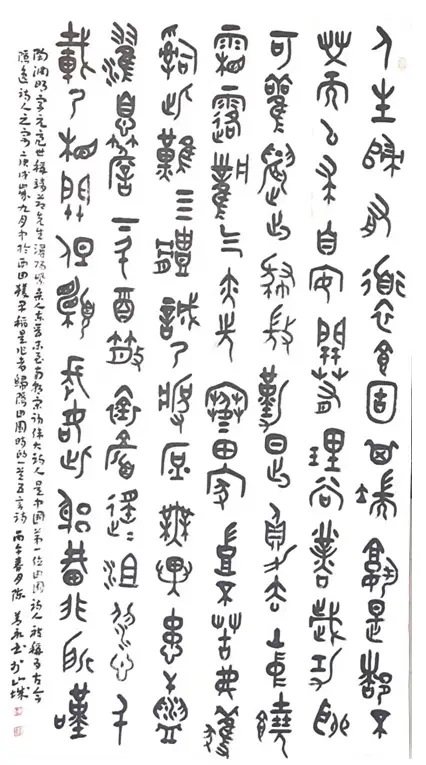 人生歸有衜衣食固其端孰是都不
營而以求自安開春理常業歲功聊
可觀晨出肆微勤日入負禾還山中饒
霜露風气亦先寒田家豈不苦弗獲
辭此難四體誠乃疲庶無異患干盥
濯息簷下斗酒散襟顏遥遥沮溺心千
載乃相關但願長如此躬耕非所歎
陶渊明字元亮世稱靖節先生潯陽柴桑人东晉末至南朝宋初偉大诗人是中國第一位田園詩人被稱为古今
隱逸詩人之宗庚戌歲九月中於西田穫早稻是作者歸隱田園時的一首五言詩丙午春月陳善永书於山城